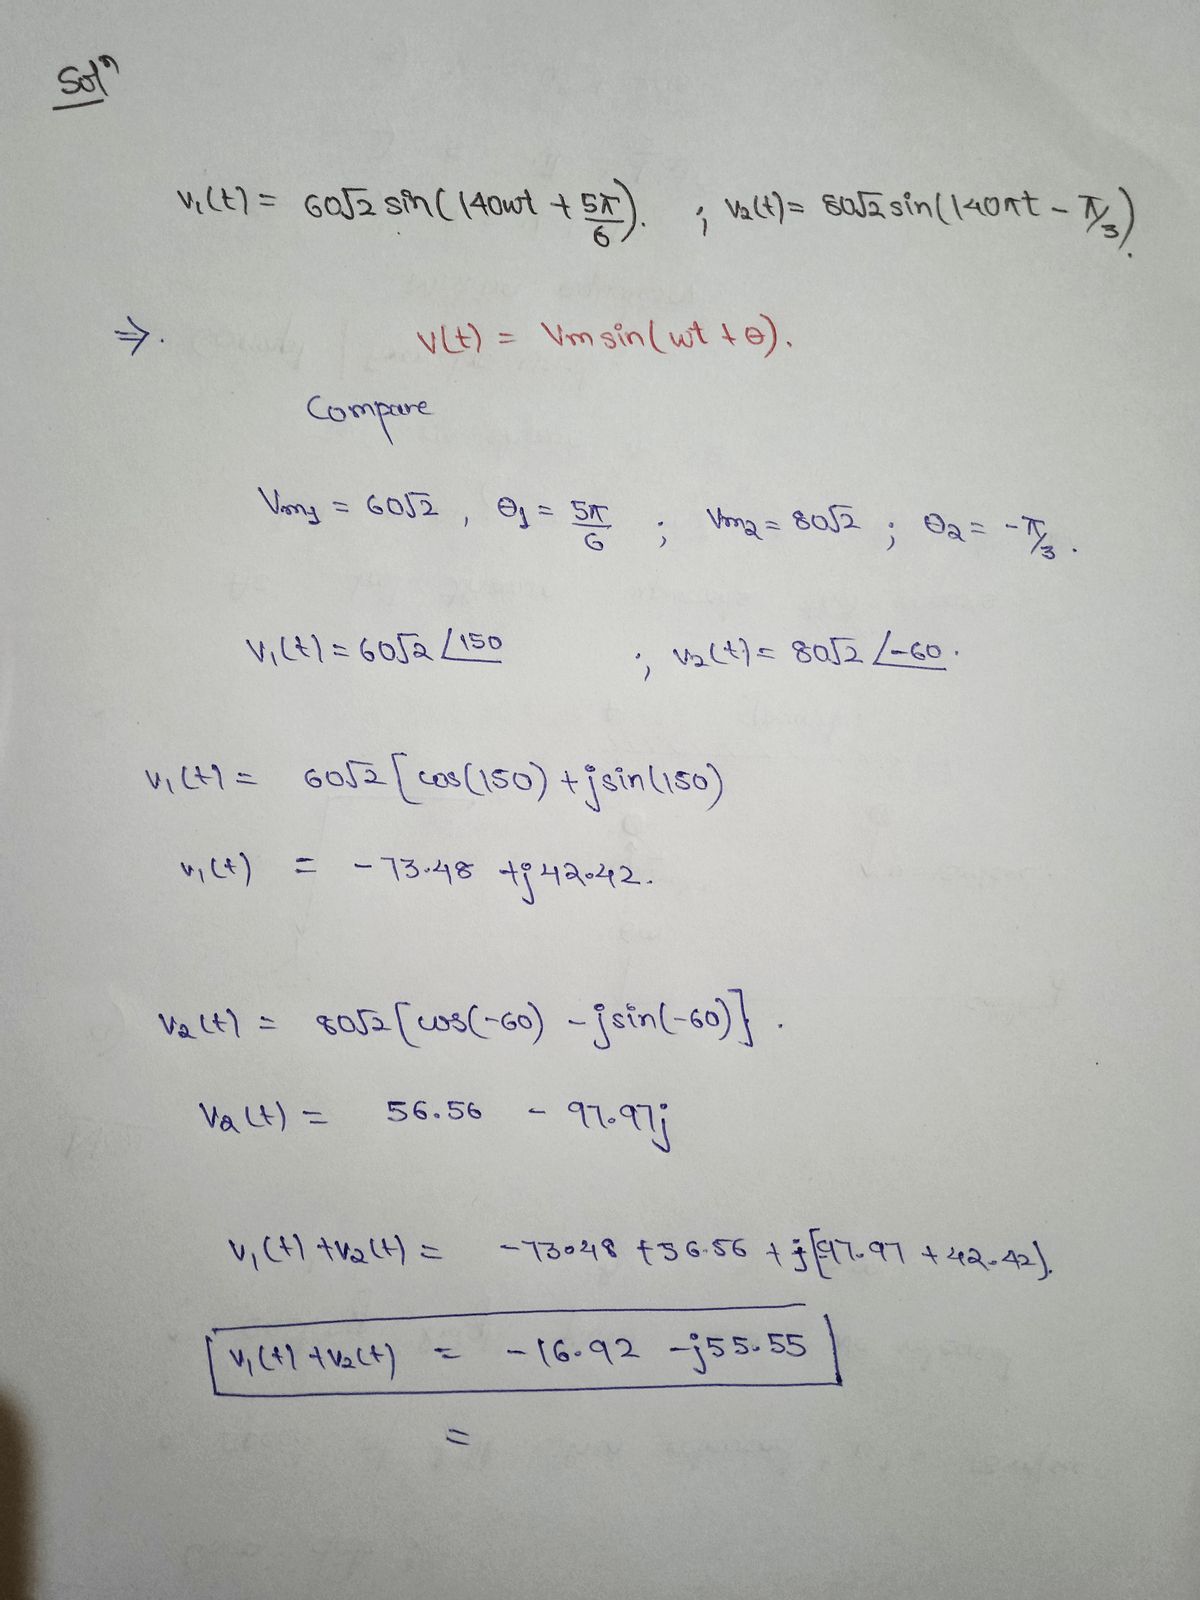 Solⁿ
v₁(t) = 60√2 sin(140wt + 5π/6). ; v₂(t) = 80√2 sin(140πt - π/3).
⇒. v(t) = Vm sin(wt + θ).
Compare
Vm₁ = 60√2 , θ₁ = 5π/6 ; Vm₂ = 80√2 ; θ₂ = -π/3 .
v₁(t) = 60√2 ∠150 ; v₂(t) = 80√2 ∠-60 .
v₁(t) = 60√2 [cos(150) + jsin(150)
v₁(t) = -73.48 +j42.42.
v₂(t) = 80√2 [cos(-60) - jsin(-60)] .
v₂(t) = 56.56 - 97.97j
v₁(t) + v₂(t) = -73.48 + 56.56 + j[97.97 + 42.42].
v₁(t) + v₂(t) = -16.92 -j55.55
=